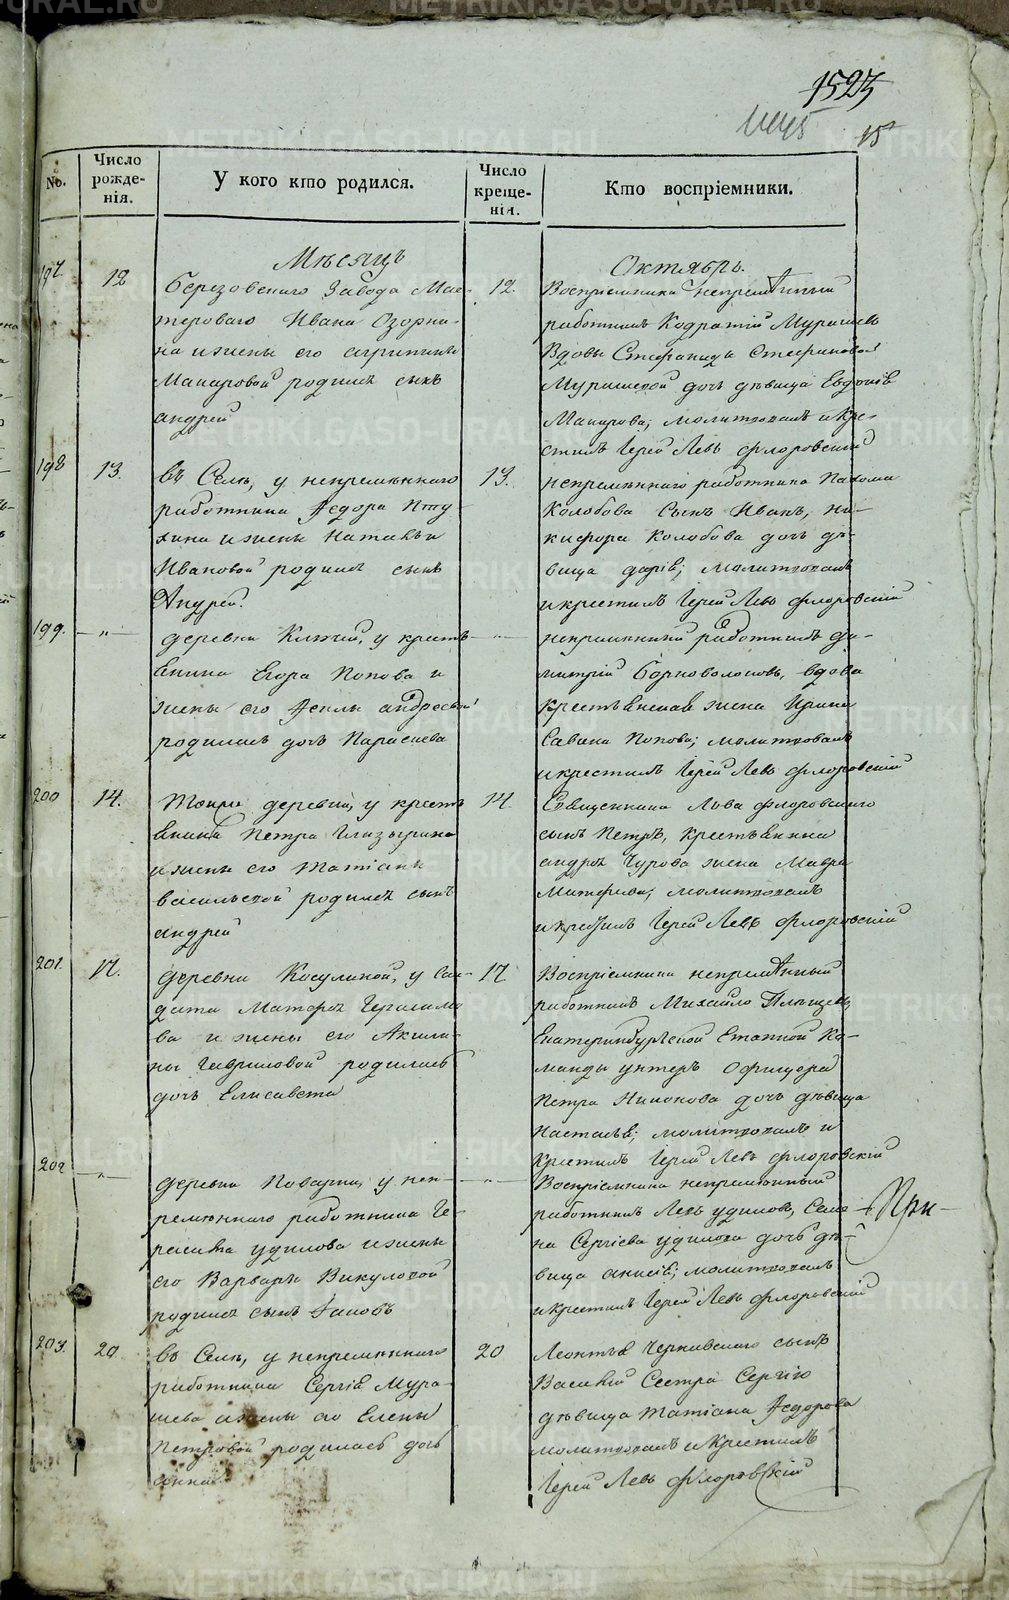 1523
15
No.
Число рожде-нія.
У кого кто родился.
Число креще-нія.
Кто воспріемники.
Мѣсяцъ
Октябрь.
197.
12
березовскаго завода Мас-
тероваго Ивана Озорни-
на и жены его агрипины
Макаровой родился сынъ
андрей
12.
Воспріемники непремѣнный
работникъ Кодратій Мурашевъ
Вдовы Стефаниды Стефановой
Мурашевой дочь дѣвица Евдокія
Макарова; молитвовалъ и кре-
стилъ Іерей Левъ флоровскій
198
13.
въ Селѣ, у непремѣннаго
работника Ѳедора Пту-
хина и жены Натальи
Ивановой родился сынъ
Андрей.
13.
непремѣннаго работника Пахома
Колобова Сынъ Иванъ, ни-
кифора Колобова дочь дѣ-
вица дарія; молитвовалъ
и крестилъ Іерей Левъ флоровскій
199.
—"—
деревни Ключей, у кресть-
янина Егора Попова и
жены его Ѳеклы андреевой
родилась дочь Параскева
—"—
непремѣнный работникъ ди-
митрій Борноволоковъ, вдова
крестьянская жена Ирина
Савина Попова; молитвовалъ
и крестилъ Іерей Левъ флоровскій
200
14.
деревни, у кресть-
янина Петра Глазырина
и жены его Татіаны
васильевой родился сынъ
андрей
14.
Священника Льва флоровскаго
сынъ Петръ, крестьянина
андрея Чурова жена Мавра
молитвовалъ
и крестилъ Іерей Левъ флоровскій
201.
17.
деревни Косулиной, у Сол-
дата Герасимо-
ва и жены его Акили-
ны Гавриловой родилась
дочь Елисавета
17
Воспріемники непремѣнный
работникъ Михайло Плѣщевъ,
Екатеринбургской Етапной Ко-
манды унтеръ Офицера
Петра Никонова дочь дѣвица
Настасья; молитвовалъ и
крестилъ Іерей Левъ флоровскій
202
—"—
деревни Поварни, у неп-
ремѣннаго работника Ге-
расима удилова и жены
его Варвары Викуловой
родился сынъ Іаковъ
—"—
Воспріемники непремѣнный
работникъ Левъ удиловъ, Семе-
на Сергіева удилова дочь дѣ-
вица анисія; молитвовалъ
и крестилъ Іерей Левъ флоровскій
—При—
203.
20
въ Селѣ, у непремѣннаго
работника Сергія Мура-
шева и жены его Елены
Петровой родилась дочь
анна
20
Леонтья Чернавскаго сынъ
Василій Сестра Сергію
дѣвица Татіана Ѳедорова
молитвовалъ и крестилъ
Іерей Левъ флоровскій
METRIKI.GASO-URAL.RU